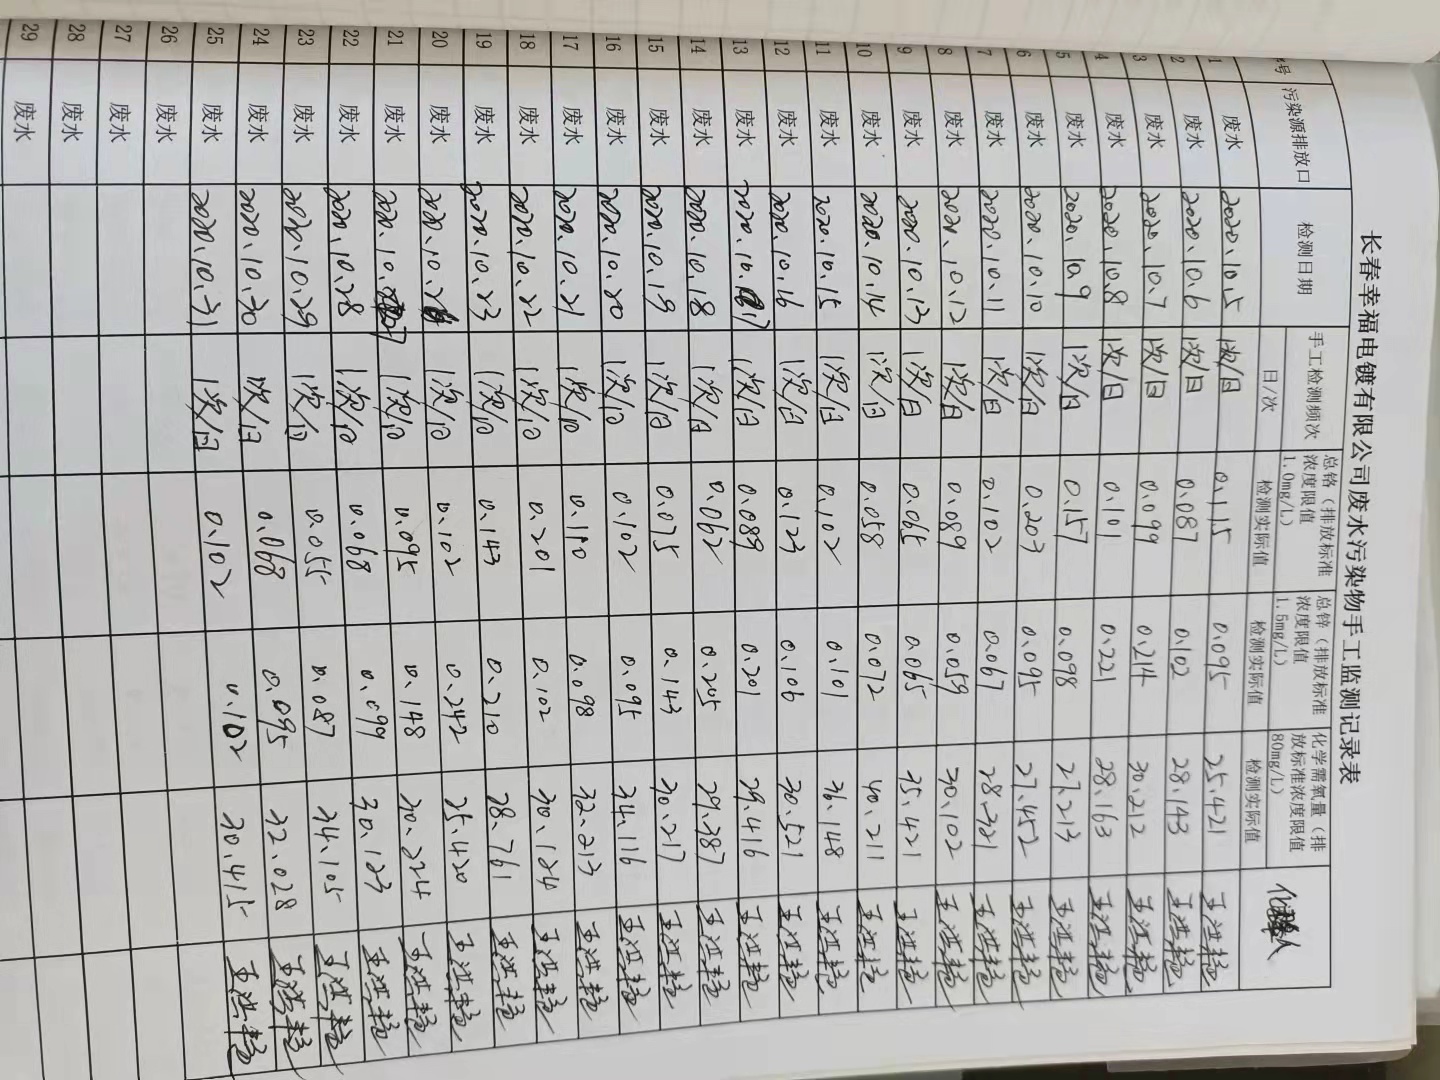 长春幸福电镀有限公司废水污染物手工监测记录表
号 污染源排放口 检测日期 手工检测频次 日/次 总铬（排放标准浓度限值1.0mg/L）检测实际值 总锌（排放标准浓度限值1.5mg/L）检测实际值 化学需氧量（排放标准浓度限值80mg/L）检测实际值
1 废水 2020.10.5 1次/日 0.115 0.095 25.421
2 废水 2020.10.6 1次/日 0.087 0.102 28.143
3 废水 2020.10.7 1次/日 0.099 0.214 30.212
4 废水 2020.10.8 1次/日 0.101 0.221 28.163
5 废水 2020.10.9 1次/日 0.157 0.098 27.213
6 废水 2020.10.10 1次/日 0.203 0.095 27.452
7 废水 2020.10.11 1次/日 0.102 0.067 28.321
8 废水 2020.10.12 1次/日 0.089 0.059 30.102
9 废水 2020.10.13 1次/日 0.065 0.065 35.421
10 废水 2020.10.14 1次/日 0.058 0.072 40.211
11 废水 2020.10.15 1次/日 0.102 0.101 36.148
12 废水 2020.10.16 1次/日 0.123 0.106 30.521
13 废水 2020.10.17 1次/日 0.089 0.201 29.416
14 废水 2020.10.18 1次/日 0.062 0.205 29.387
15 废水 2020.10.19 1次/日 0.075 0.143 30.217
16 废水 2020.10.20 1次/日 0.102 0.095 34.116
17 废水 2020.10.21 1次/日 0.110 0.098 32.213
18 废水 2020.10.22 1次/日 0.201 0.102 30.124
19 废水 2020.10.23 1次/日 0.143 0.210 28.761
20 废水 1次/日 0.102 0.242 25.420
21 废水 1次/日 0.095 0.148 30.224
22 废水 2020.10.28 1次/日 0.068 0.099 30.123
23 废水 2020.10.29 1次/日 0.055 0.087 34.105
24 废水 2020.10.30 1次/日 0.068 0.095 32.028
25 废水 2020.10.31 1次/日 0.102 0.102 30.415
26 废水
27 废水
28 废水
29 废水